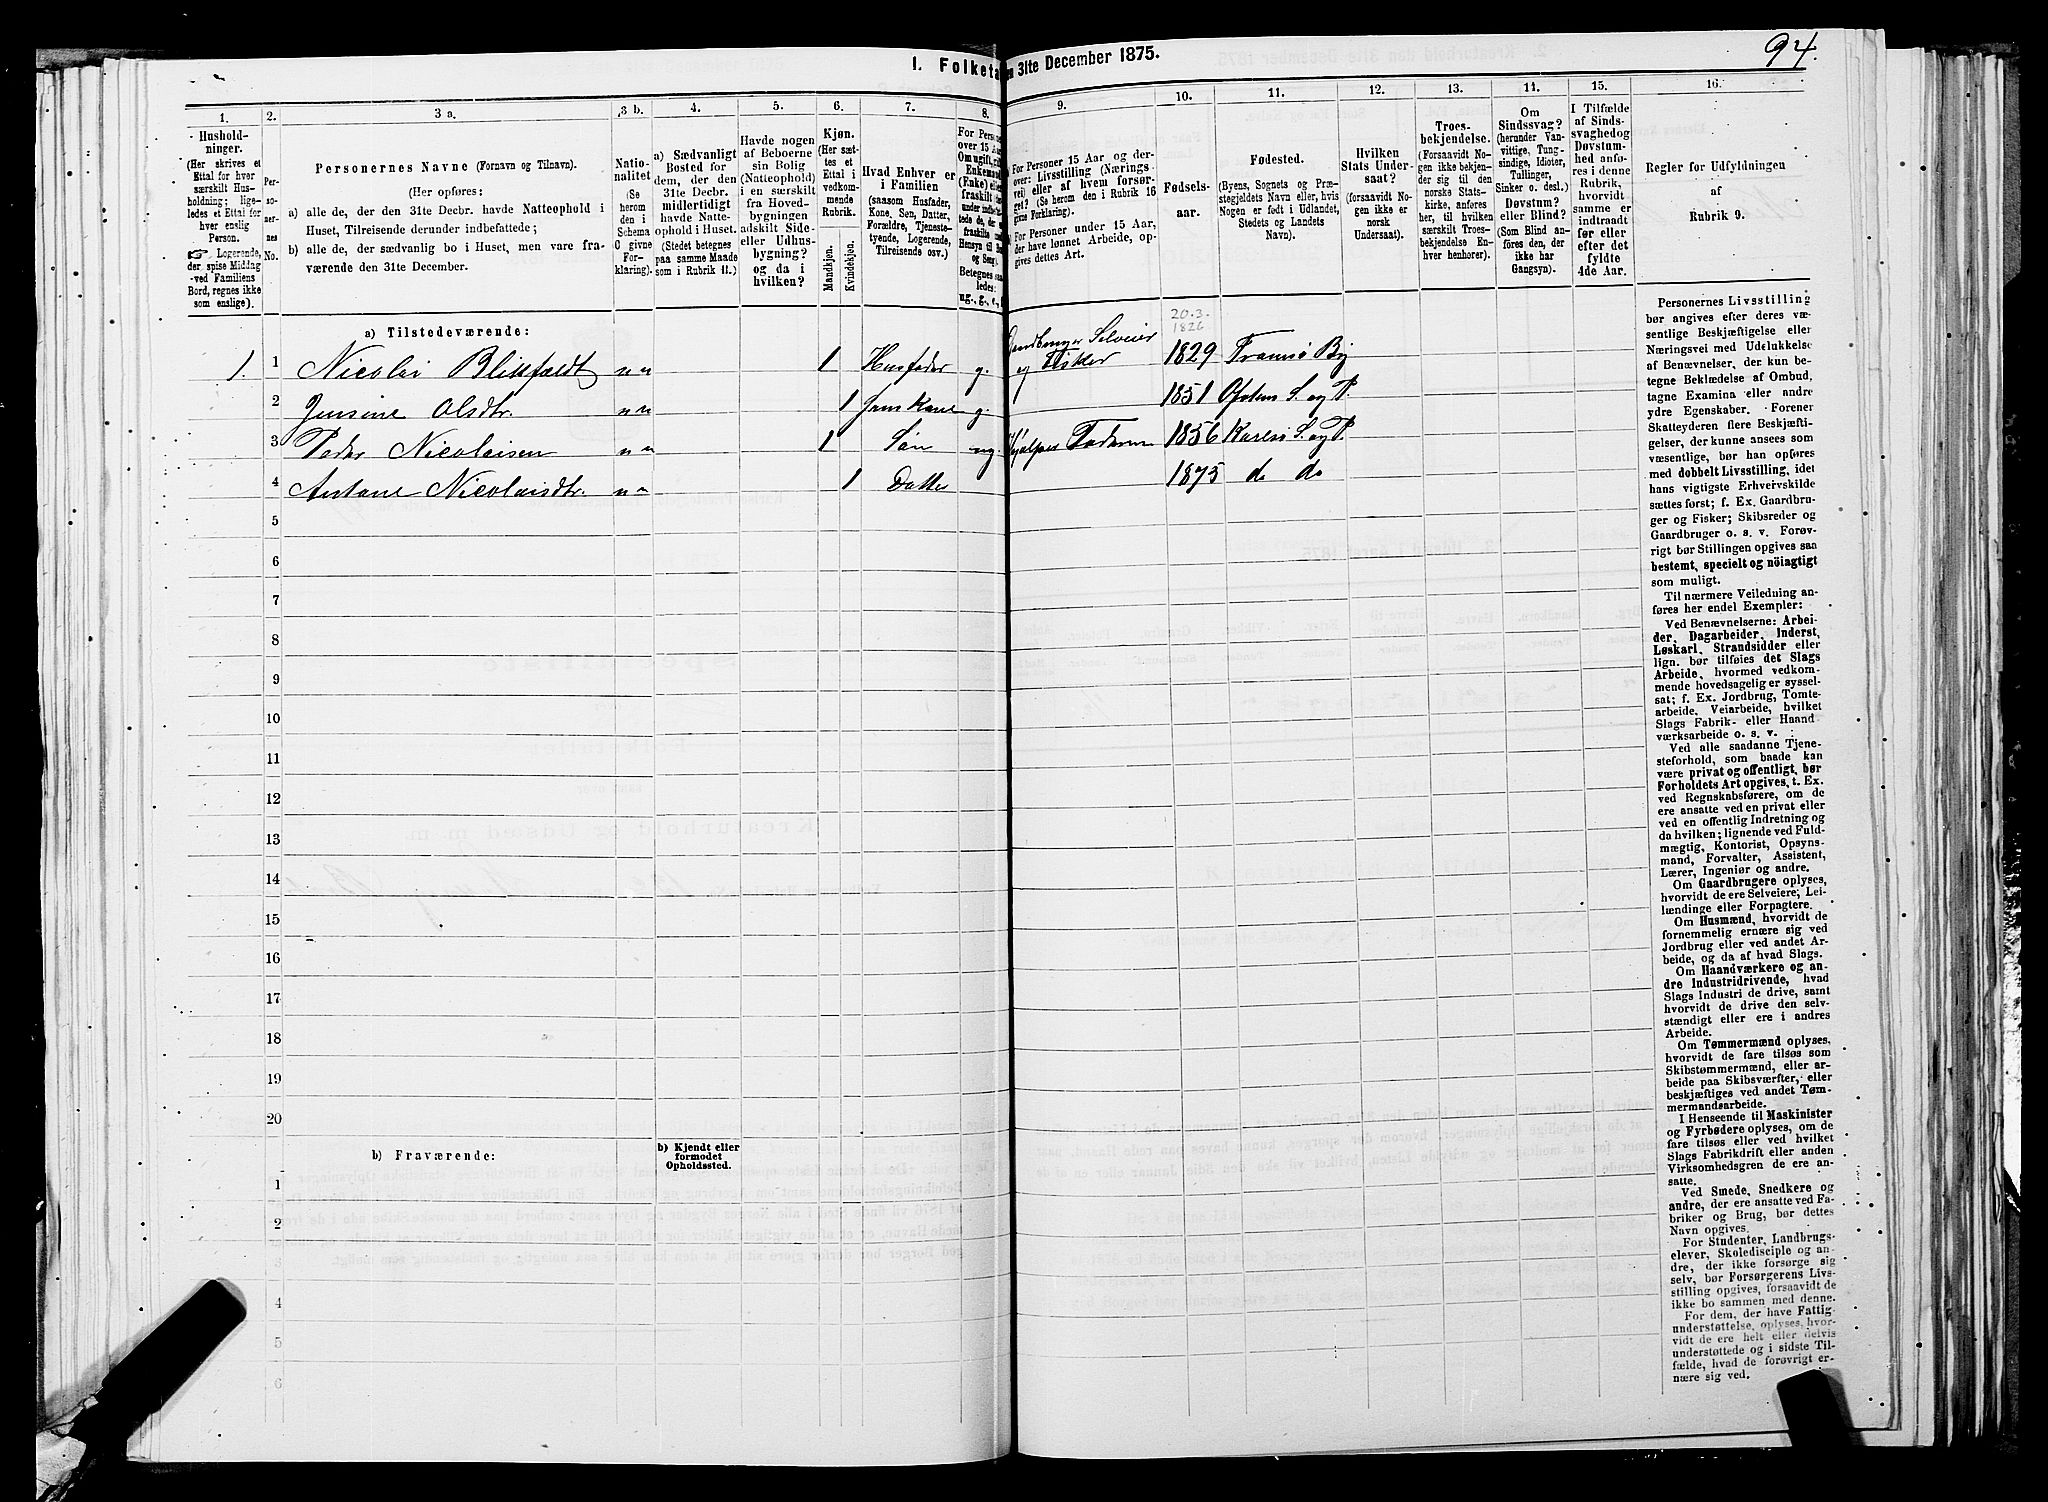 94.
1. Folketa
n 31te December 1875.
1.
2.
3 a.
3 b.
4.
5.
6.
7.
8.
9.
10.
11.
12.
13.
14.
15.
16.
Hushold-
ninger.
(Her skrives et
Ettal for hver
særskilt Hus-
holdning; lige-
ledes et Ettal for
hver enslig
Person.
☞ Logerende,
der spise Middag
ved Familiens
Bord, regnes ikke
som enslige).
Per-
so-
ner-
nes
No.
Personernes Navne (Fornavn og Tilnavn).
(Her opføres:
a) alle de, der den 31te Decbr. havde Natteophold i
Huset, Tilreisende derunder indbefattede;
b) alle de, der sædvanlig bo i Huset, men vare fra-
værende den 31te December.
Natio-
nalitet
(Se
herom
den i
Schema
C givne
For-
klaring).
a) Sædvanligt
Bosted for
dem, der den
31te Decbr.
midlertidigt
havde Natte-
ophold i Huset.
(Stedet betegnes
paa samme Maade
som i Rubrik 11.)
Havde nogen
af Beboerne
sin Bolig
(Natteophold)
i en særskilt
fra Hoved-
bygningen
adskilt Side-
eller Udhus-
bygning?
og da i
hvilken?
Kjøn.
(Her sæt-
tes et
Ettal i
vedkom-
mende
Rubrik.
Mandkjøn.
Kvindekjøn.
Hvad Enhver er
i Familien
(saasom Husfader,
Kone, Søn, Datter,
Forældre, Tjeneste-
tyende, Logerende,
Tilreisende osv.)
For Perso
over 15 Aar
Om ugift, gi
Enkemand
(Enke) eller
fraskilt
ledes:
ug., g., e.,
For Personer 15 Aar og der-
over: Livsstilling (Nærings
vei) eller af hvem forsør-
get? (Se herom den i Rubrik 16
givne Forklaring).
For Personer under 15 Aar,
der have lønnet Arbeide, op-
gives dettes Art.
Fødsels-
aar.
Fødested.
(Byens, Sognets og Præ-
stegjeldets Navn eller, hvis
Nogen er født i Udlandet,
Stedets og Landets
Navn).
Hvilken
Stats Under-
saat?
(forsaavidt No-
gen ikke er
norsk
Undersaat).
Troes-
bekjendelse.
(Forsaavidt No-
gen ikke bekjen-
der sig til den
norske Stats-
kirke, anføres
her, til hvilken
særskilt Troes-
bekjendelse En-
hver henhorer).
Om
Sindssvag?
(herunder Van-
vittige, Tung-
sindige, Idioter,
Tullinger,
Sinker o. desl.)
Døvstum?
eller Blind?
(Som Blind an-
føres den, der
ikke har
Gangsyn).
I Tilfælde
af Sinds-
svaghed og
Døvstum-
hed anfø-
res i denne
Rubrik,
hvorvidt
samme er
indtraadt
før eller
efter det
fyldte
4de Aar.
Regler for Udfyldningen
af
Rubrik 9.
a) Tilstedeværende:
20.3.
1826
Selveier
1. 1 Nicolai Blikfeldt n n 1 Husfader g. og Fisker 1829 Tromsø By
2 Jensine Olsdtr. n n 1 hans Kone g. 1851 Ofoten S. og P.
3 Peder Nicolaisen n n 1 Søn ug. Hjelper Faderen 1856 Karlsø S. og P.
4 Antone Nicolaisdtr. n n 1 Datter 1875 do do
5
6
7
8
9
10
11
12
13
14
15
16
17
18
19
20
b) Fraværende:
b) Kjendt eller
formodet
Opholdssted.
1
2
3
4
5
6
Personernes Livsstilling
bør angives efter deres væ-
sentlige Beskjæftigelse eller
Næringsvei med Udelukkelse
af Benævnelser, der kun be-
tegne Beklædelse af Ombud,
tagne Examina eller andre
ydre Egenskaber. Forener
Skatteyderen flere Beskjæfti-
gelser, der kunne ansees som
væsentlige, bør han opføres
med dobbelt Livsstilling, idet
hans vigtigste Erhvervskilde
sættes først; f. Ex. Gaardbru-
ger og Fisker; Skibsreder og
Gaardbruger o. s. v. Forøv-
rigt bør Stillingen opgives saa
bestemt, specielt og nöiagtigt
som muligt.
Til nærmere Veiledning an-
føres her endel Exempler:
Ved Benævnelserne: Arbei-
der, Dagarbeider, Inderst,
Løskarl, Strandsidder eller
lign. bør tilføies det Slags
Arbeide, hvormed vedkom-
mende hovedsagelig er syssel-
sat; f. Ex. Jordbrug, Tomte-
arbeide, Veiarbeide, hvilket
Slags Fabrik- eller Haand
værksarbeide o. s. v.
Ved alle saadanne Tjene-
steforhold, som baade kan
være privat og offentligt, bør
Forholdets Art opgives, t. Ex.
ved Regnskabsførere, om de
ere ansatte ved en privat eller
ved en offentlig Indretning og
da hvilken; lignende ved Fuld-
mægtig, Kontorist, Opsyns-
mand, Forvalter, Assistent,
Lærer, Ingeniør og andre.
Om Gaardbrugere oplyses,
hvorvidt de ere Selveiere, Lei-
lændinge eller Forpagtere.
Om Husmænd, hvorvidt de
fornemmelig ernære sig ved
Jordbrug eller ved andet Ar-
beide, og da af hvad Slags.
Om Haandværkere og an-
dre Industridrivende, hvad
Slags Industri de drive, samt
hvorvidt de drive den selv-
stændigt eller ere i andres
Arbeide.
Om Tømmermænd oplyses,
hvorvidt de fare tilsøs som
Skibstømmermænd, eller ar-
beide paa Skibsværfter, eller
beskjæftiges ved andet Tøm-
mermandsarbeide.
I Henseende til Maskinister
og Fyrbødere oplyses, om de
fare tilsøs eller ved hvilket
Slags Fabrikdrift eller anden
Virksomhedsgren de ere an-
satte.
Ved Smede, Snedkere og
andre, der ere ansatte ved Fa-
briker og Brug, bør dettes
Navn opgives.
For Studenter, Landbrugs-
elever, Skoledisciple og an-
dre, der ikke forsørge sig
selv, bør Forsørgerens Livs-
stilling opgives, forsaavidt de
ikke bo sammen med denne.
For dem, der have Fattig-
understøttelse, oplyses, hvor-
vidt de ere helt eller delvis
understøttede og i sidste Til-
fælde, hvad de forøvrigt er-
nære sig ved.